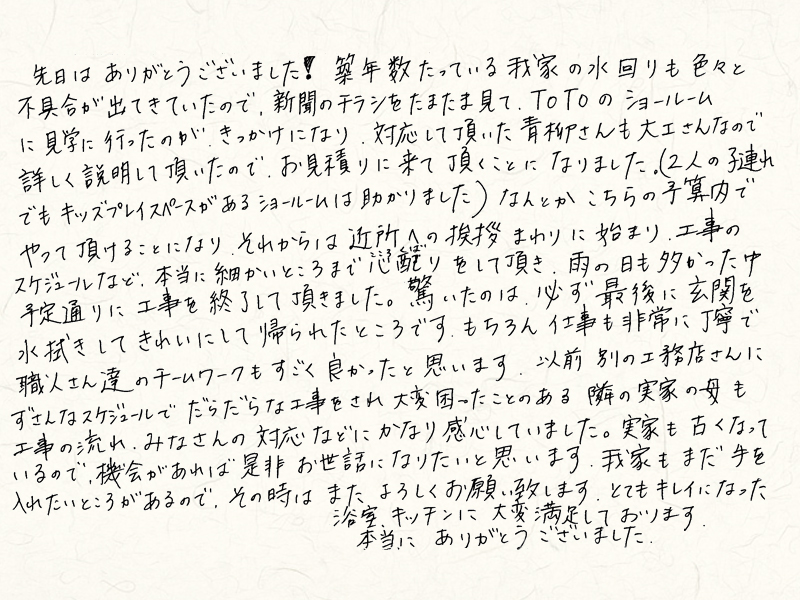 先日は ありがとうございました! 築年数たっている我家の水回りも色々と
不具合が出てきていたので、新聞のチラシをたまたま見て、TOTOの ショールーム
に見学に行ったのが、きっかけになり、対応して頂いた青柳さんも大工さんなので
詳しく説明して頂いたので、お見積りに来て頂くことに なりました。(2人の子連れ
でもキッズプレイスペースがあるショールームは助かりました) なんとか こちらの予算内で
やって頂けることになり、それからは近所への挨拶まわりに始まり、工事の
スケジュールなど、本当に細かいところまで心配りをして頂き、雨の日も多かった中
予定通りに工事を終了して頂きました。驚いたのは、必ず最後に玄関を
水拭きしてきれいにして帰られたところです。もちろん仕事も非常に丁寧で
職人さん達のチームワークもすごく良かったと思います。以前別の工務店さんに
ずさんなスケジュールでだらだらな工事をされ大変困ったことのある 隣の実家の母も
工事の流れ、みなさんの対応などにかなり感心していました。実家も古くなって
いるので、機会があれば是非お世話になりたいと思います。我家もまだ手を
入れたいところがあるので、その時は また よろしくお願い致します。とてもキレイになった
浴室、キッチンに大変満足しております。
本当に ありがとうございました。